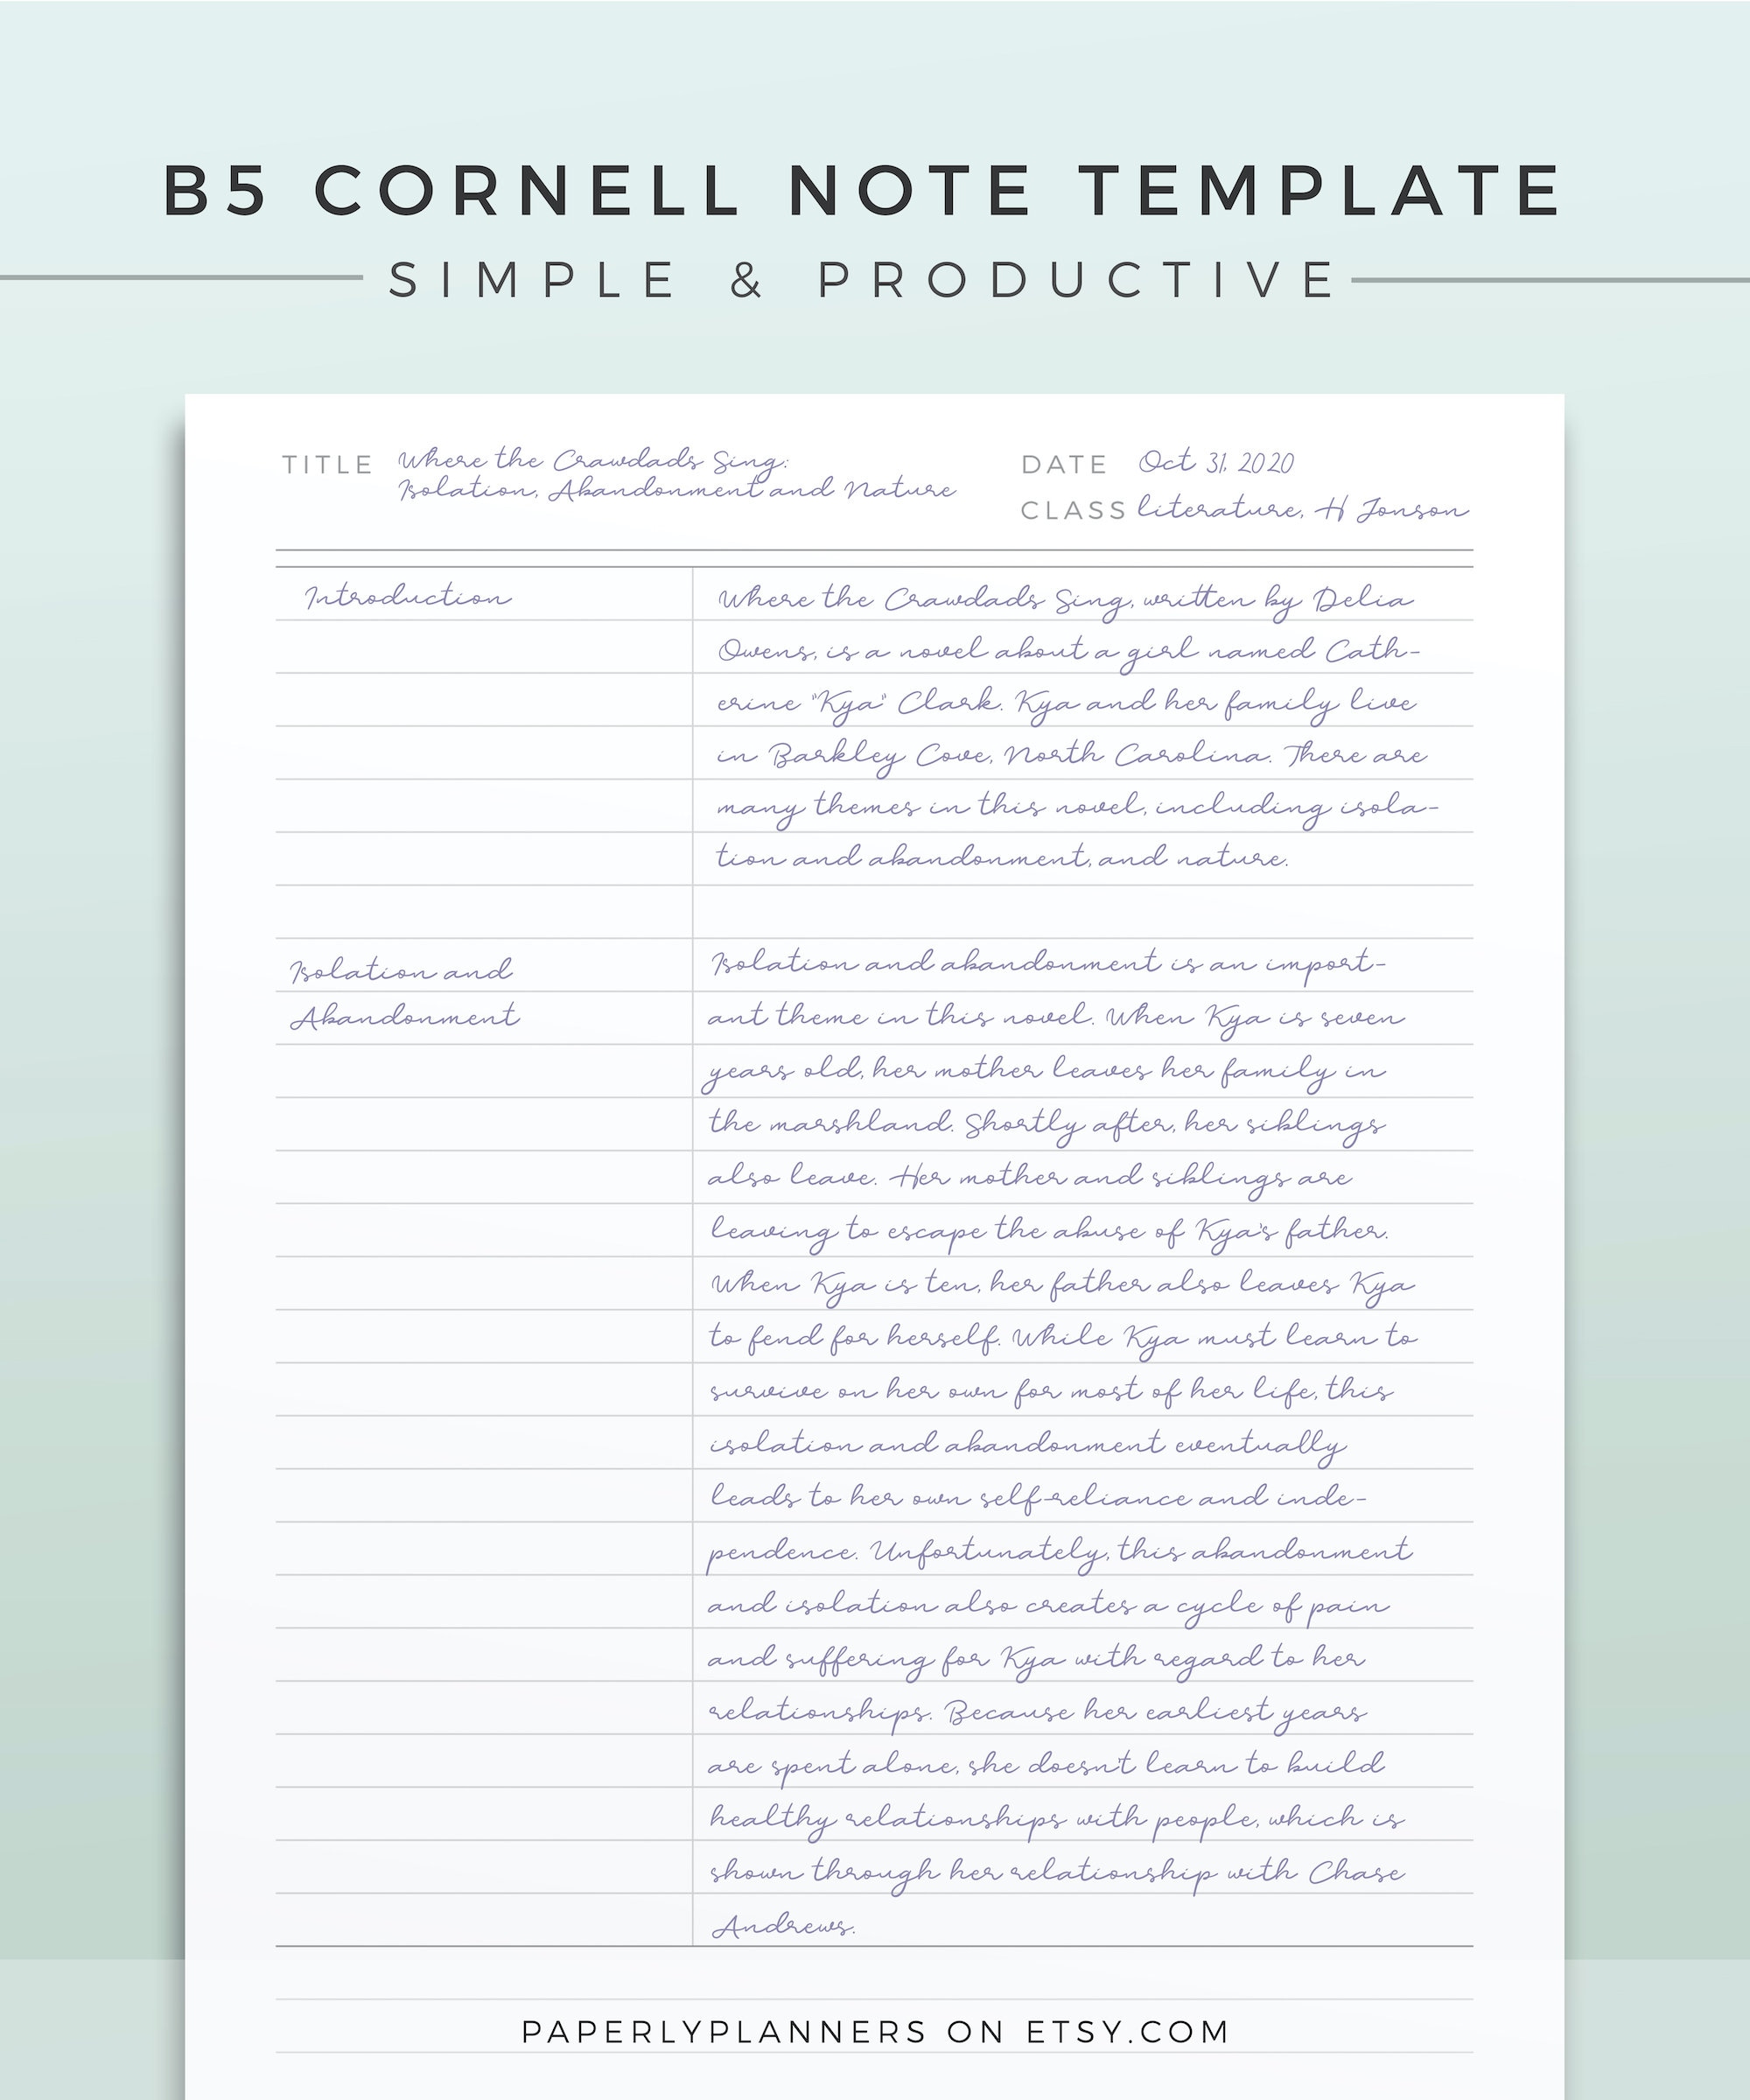 B5 CORNELL NOTE TEMPLATE
SIMPLE & PRODUCTIVE
TITLE Where the Crawdads Sing:
Isolation, Abandonment and Nature
DATE Oct 31, 2020
CLASS literature, H Jonson
Introduction
Where the Crawdads Sing, written by Delia
Owens, is a novel about a girl named Cath-
erine "Kya" Clark. Kya and her family live
in Barkley Cove, North Carolina. There are
many themes in this novel, including isola-
tion and abandonment, and nature.
Isolation and
Abandonment
Isolation and abandonment is an import-
ant theme in this novel. When Kya is seven
years old, her mother leaves her family in
the marshland. Shortly after, her siblings
also leave. Her mother and siblings are
leaving to escape the abuse of Kya's father.
When Kya is ten, her father also leaves Kya
to fend for herself. While Kya must learn to
survive on her own for most of her life, this
isolation and abandonment eventually
leads to her own self-reliance and inde-
pendence. Unfortunately, this abandonment
and isolation also creates a cycle of pain
and suffering for Kya with regard to her
relationships. Because her earliest years
are spent alone, she doesn't learn to build
healthy relationships with people, which is
shown through her relationship with Chase
Andrews.
PAPERLYPLANNERS ON ETSY.COM